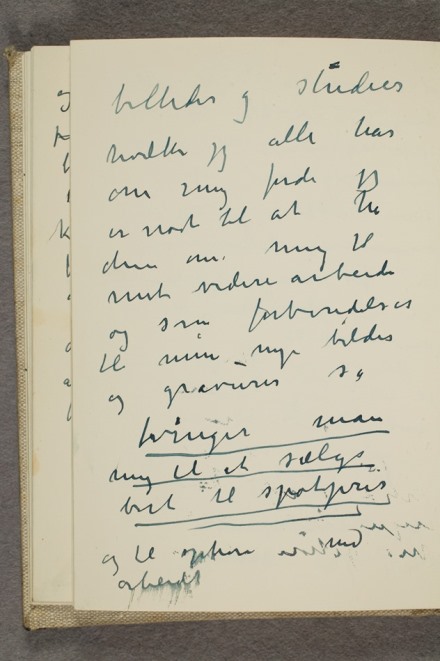 billeder og studier
hvilke jeg alle har
om mig fordi jeg
er nødt til at ha
dem om mig til
mit videre arbeide
og som forberedelser
til mine nye billeder
og gravurer så
tvinger man
mig til at sælge
bort til spotpris
og til ophøre med
arbeidet